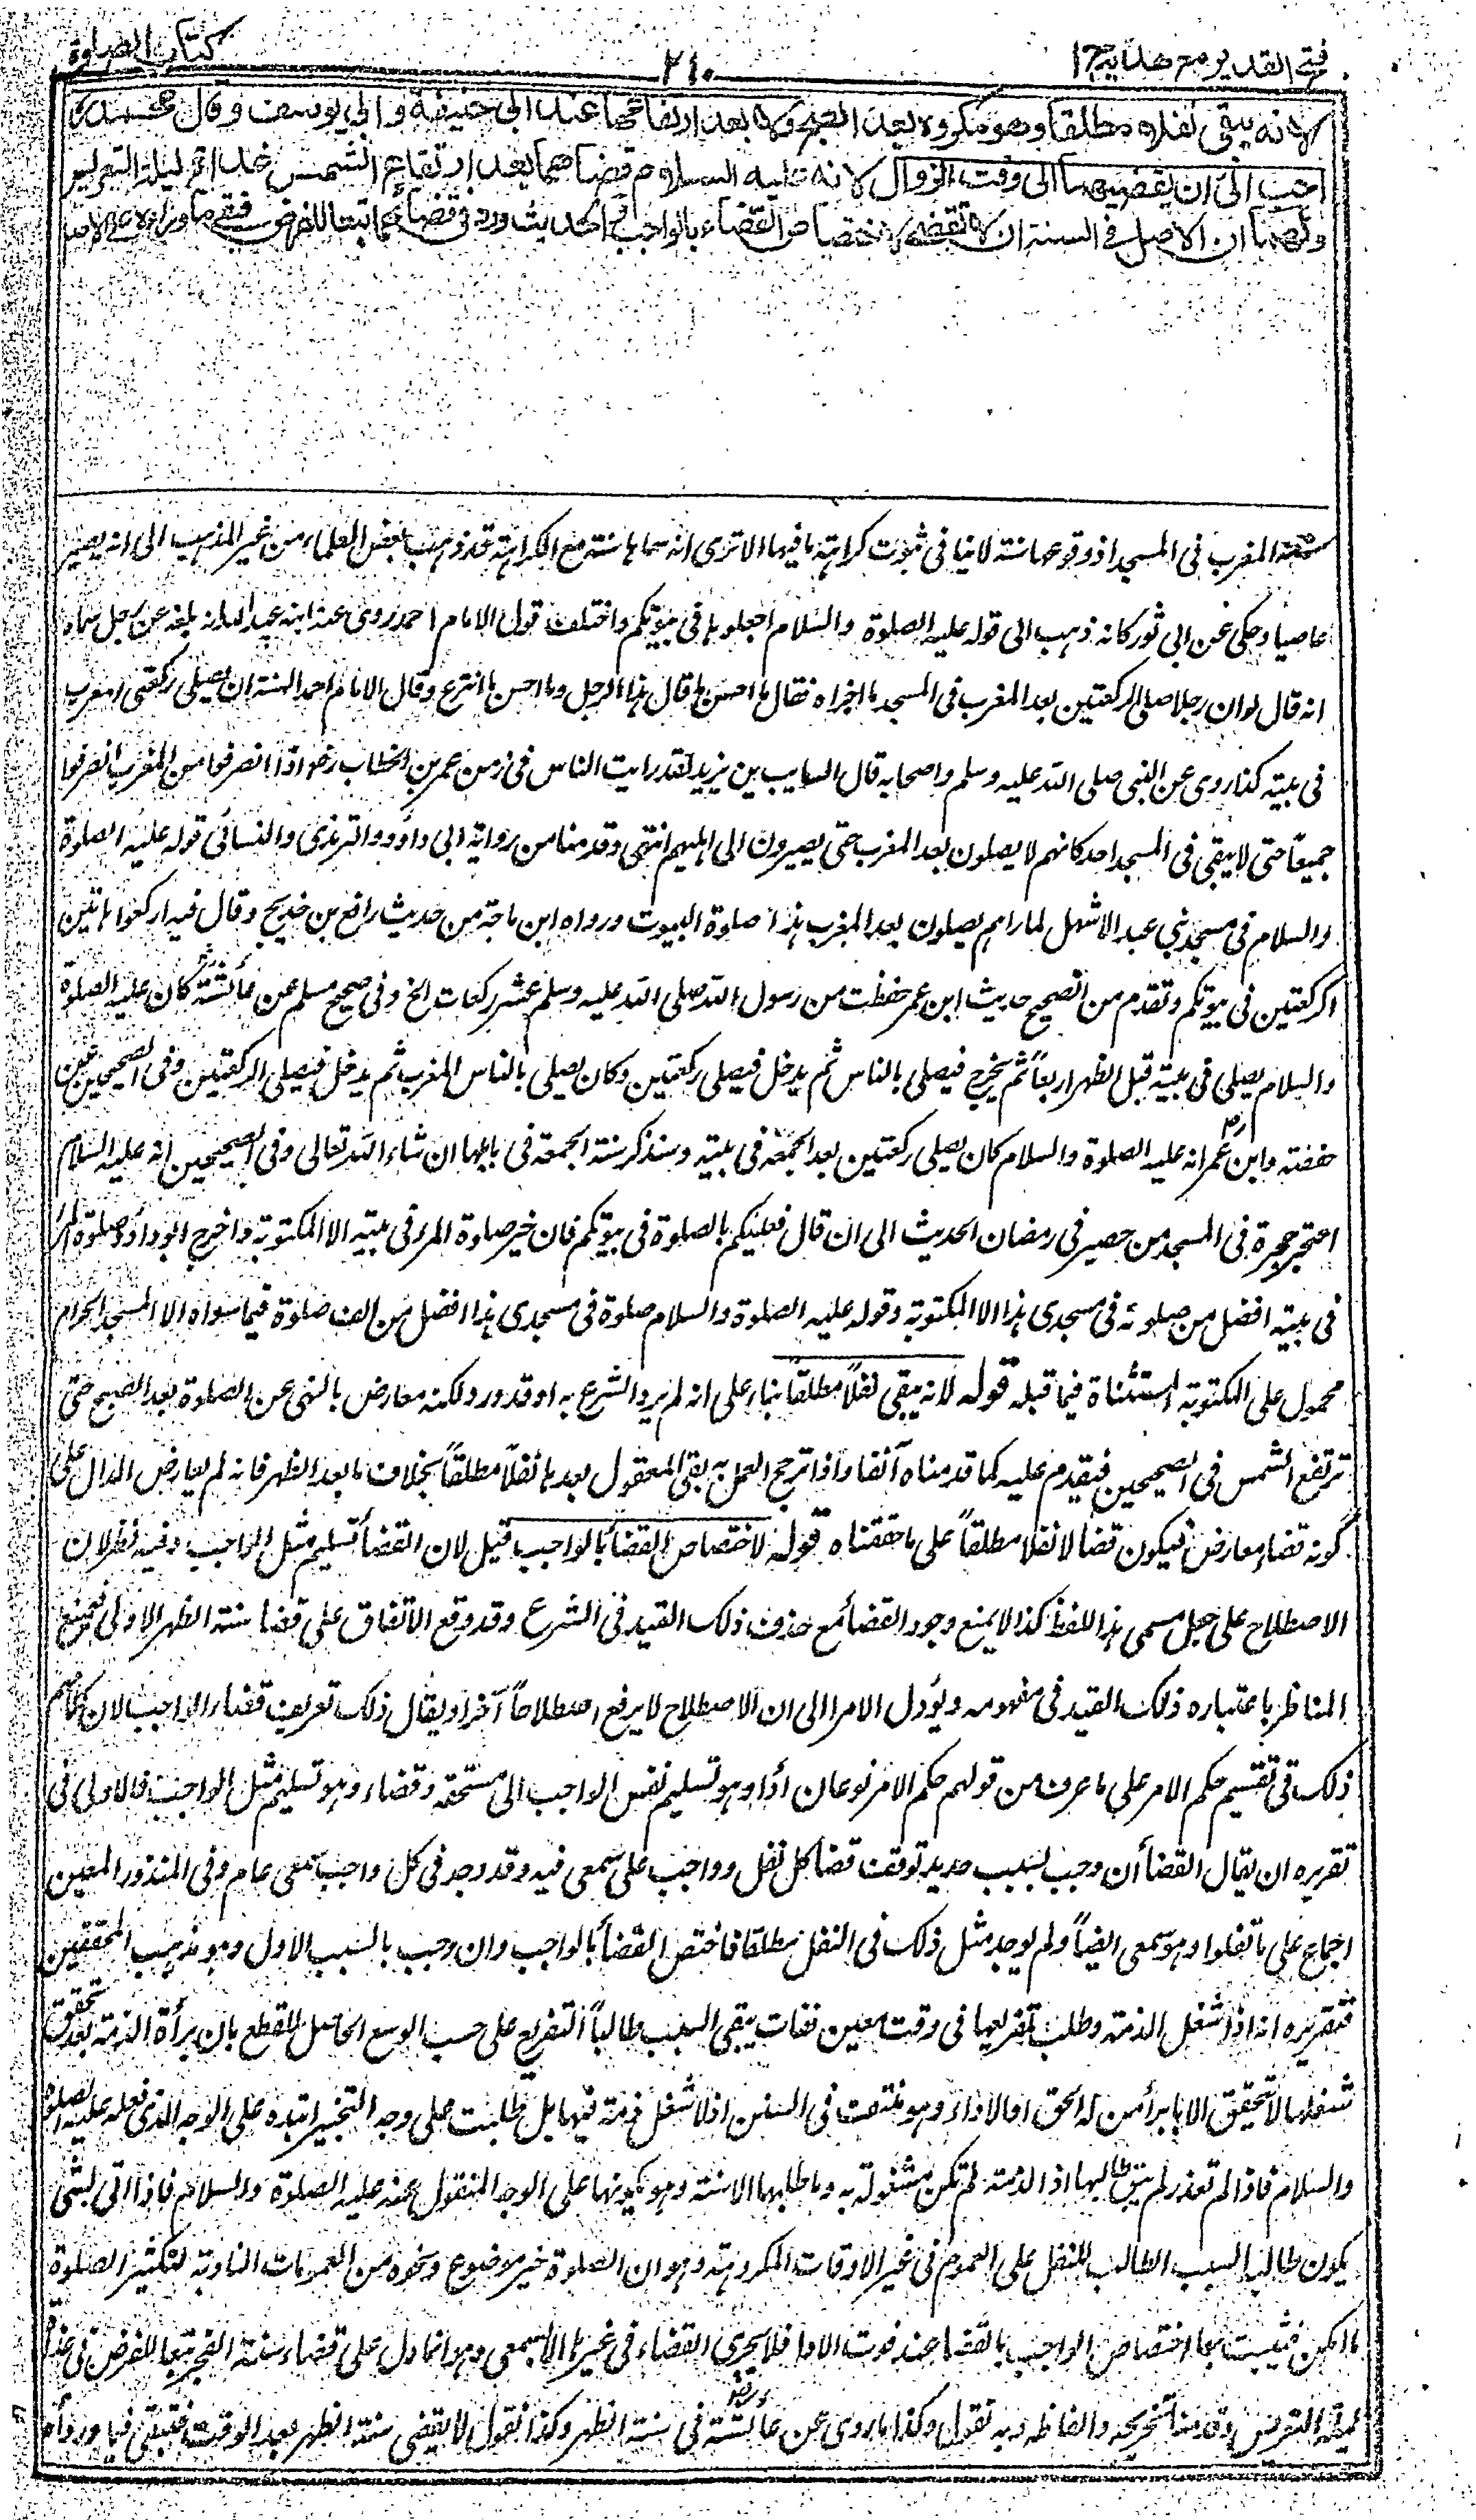 فتح القدير مع هدايه ج ١
٢١٠
كتاب الصلوة
لانه يبقى نفلا مطلقا وهو مكروه بعد الصبح ولا بعد ارتفاعها عند ابي حنيفة وابي يوسف وقال محمد
احب الى ان يقضيهما الى وقت الزوال لانه عليه السلام قضاهما بعد ارتفاع الشمس غداة ليلة التعريس
ولهما ان الاصل في السنة ان لا تقضى لاختصاص القضاء بالواجب والحديث ورد في قضائها تبعا للفرض فبقى ما وراءه على الاصل
سنة المغرب فى المسجد اذ وقوعها سنة لا ينافى ثبوت كراهة ما فيها الا ترى انه سماها سنة مع الكراهة قد ذهب بعض العلماء من غير المذهب الى انه يصير
عاصيا وحكى عن ابى ثور كانه ذهب الى قوله عليه الصلوة والسلام اجعلوها فى بيوتكم واختلف قول الامام احمد روى عنه ابنه عبد الله انه بلغه عن رجل سماه
انه قال لو ان رجلا صلى الركعتين بعد المغرب فى المسجد ما اجزاه فقال ما احسن ما قال هذا الرجل وما احسن ما انتزع وقال الامام احمد السنة ان يصلى ركعتى المغرب
فى بيته كذا روى عن النبى صلى الله عليه وسلم واصحابه قال السايب بن يزيد لقد رايت الناس فى زمن عمر بن الخطاب رض اذا انصرفوا من المغرب انصرفوا
جميعا حتى لا يبقى فى المسجد احد كانهم لا يصلون بعد المغرب حتى يصيرون الى اهليهم انتهى وقدمنا من رواية ابى داؤد والترمذى والنسائى قوله عليه الصلوة
والسلام فى مسجد بنى عبد الاشهل لما راهم يصلون بعد المغرب هذا صلوة البيوت ورواه ابن ماجة من حديث رافع بن خديج وقال فيه اركعوا هاتين
الركعتين فى بيوتكم وتقدم من الصحيح حديث ابن عمر حفظت من رسول الله صلى الله عليه وسلم عشر ركعات الخ وفى صحيح مسلم عن عائشة رض كان عليه الصلوة
والسلام يصلى فى بيته قبل الظهر اربعا ثم يخرج فيصلى بالناس ثم يدخل فيصلى ركعتين وكان يصلى بالناس المغرب ثم يدخل فيصلى الركعتين وفى الصحيحين عن
حفصة وابن عمر رض انه عليه الصلوة والسلام كان يصلى ركعتين بعد الجمعة فى بيته وسنذكر سنة الجمعة فى بابها ان شاء الله تعالى وفى الصحيحين انه عليه السلام
احتجر حجرة فى المسجد من حصير فى رمضان الحديث الى ان قال فعليكم بالصلوة فى بيوتكم فان خير صلوة المرء فى بيته الا المكتوبة واخرج ابو داؤد صلوة المرء
فى بيته افضل من صلوته فى مسجدى هذا الا المكتوبة وقوله عليه الصلوة والسلام صلوة فى مسجدى هذا افضل من الف صلوة فيما سواه الا المسجد الحرام
محمول على المكتوبة المستثناة فيما قبله قوله لانه يبقى نفلا مطلقا بناء على انه لم يرد الشرع به او قد ورد لكنه معارض بالنهى عن الصلوة بعد الصبح حتى
ترتفع الشمس فى الصحيحين فيقدم عليه كما قدمناه آنفا واذا ترجح العمل به بقى المعقول بعدها نفلا مطلقا بخلاف ما بعد الظهر فانه لم يعارض الدال على
كونه قضاء معارض فيكون قضا لا نفلا مطلقا على ما حققناه قوله لاختصاص القضأ بالواجب قيل لان القضأ تسليم مثل الواجب وفيه نظر لان
الاصطلاح على جعل مسمى هذا اللفظ كذا لا يمنع وجود القضأ مع حذف ذلك القيد فى الشرع وقد وقع الاتفاق على قضا سنة الظهر الاولى فيمنع
المناظر باعتباره ذلك القيد فى مفهومه ويؤول الامر الى ان الاصطلاح لا يرفع اصطلاحا آخر او يقال ذلك تعريف قضاء الواجب لان كلامهم
ذلك فى تقسيم حكم الامر على ما عرف من قولهم حكم الامر نوعان أدا وهو تسليم نفس الواجب الى مستحقه وقضاء وهو تسليم مثل الواجب فالاولى فى
تقريره ان يقال القضأ ان وجب بسبب جديد توقف قضا كل نفل وواجب على سمعى فيه وقد وجد فى كل واجب سمعى عام وفى المنذور المعين
اجماع على ما نقلوا وهو سمعى ايضا ولم يوجد مثل ذلك فى النفل مطلقا فاختص القضأ بالواجب وان وجب بالسبب الاول وهو مذهب المحققين
فتقريره انه اذا شغل الذمة وطلب تفريغها فى وقت معين ففات يبقى السبب طالبا التفريغ على حسب الوسع الحاصل للقطع بان برأة الذمة بعد تحقق
شغلها لا تتحقق الا بابرأ من له الحق او بالاداء وهو منتف فى السنن اذ لا شغل ذمة فيها بل طلبت على وجه التخيير ابتداء على الوجه الذى فعله عليه الصلوة
والسلام فاذا لم تعذر لم يبق طالبها اذ الذمة لم تكن مشغولة به وما طلبها الا سنة وهو كونها على الوجه المنقول عنه عليه الصلوة والسلام فاذا اتى بشئ
يكون طالبه السبب الطالب للنفل على العموم فى غير الاوقات المكروهة وهو ان الصلوة خير موضوع ونحوه من العمومات النادبة لتكثير الصلوة
ما امكن فثبت بهما اختصاص الواجب بالقضا عند فوت الادا فلا يجرى القضاء فى غيرها الا بسمعى وهو انما دل على قضاء سنة الفجر تبعا للفرض فى غداة
ليلة التعريس وقدمنا تخريجه والفاظه وبه نقول وكذا ما روى عن عائشة رض فى سنة الظهر وكذا نقول لا يقضى سنة الظهر بعد الوقت فتبقى فيما وراءه